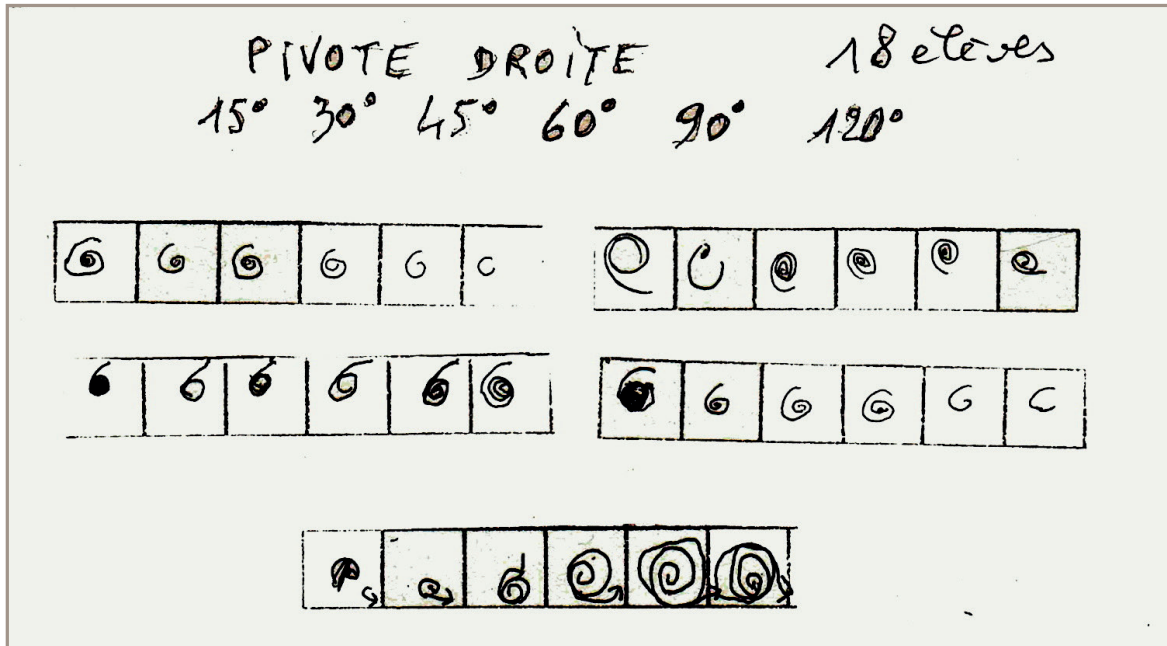 PIVOTE DROITE 18 élèves
15° 30° 45° 60° 90° 120°